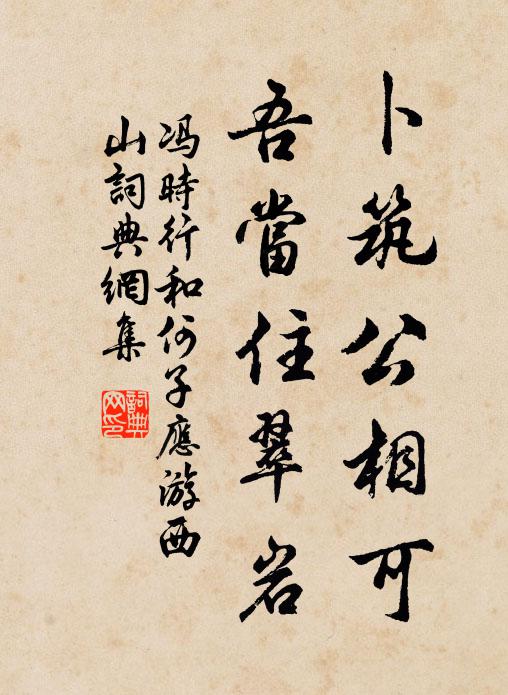 卜筑公相可
吾當住翠岩
冯時行和何子應游西
山詞典網集
詞典
网印